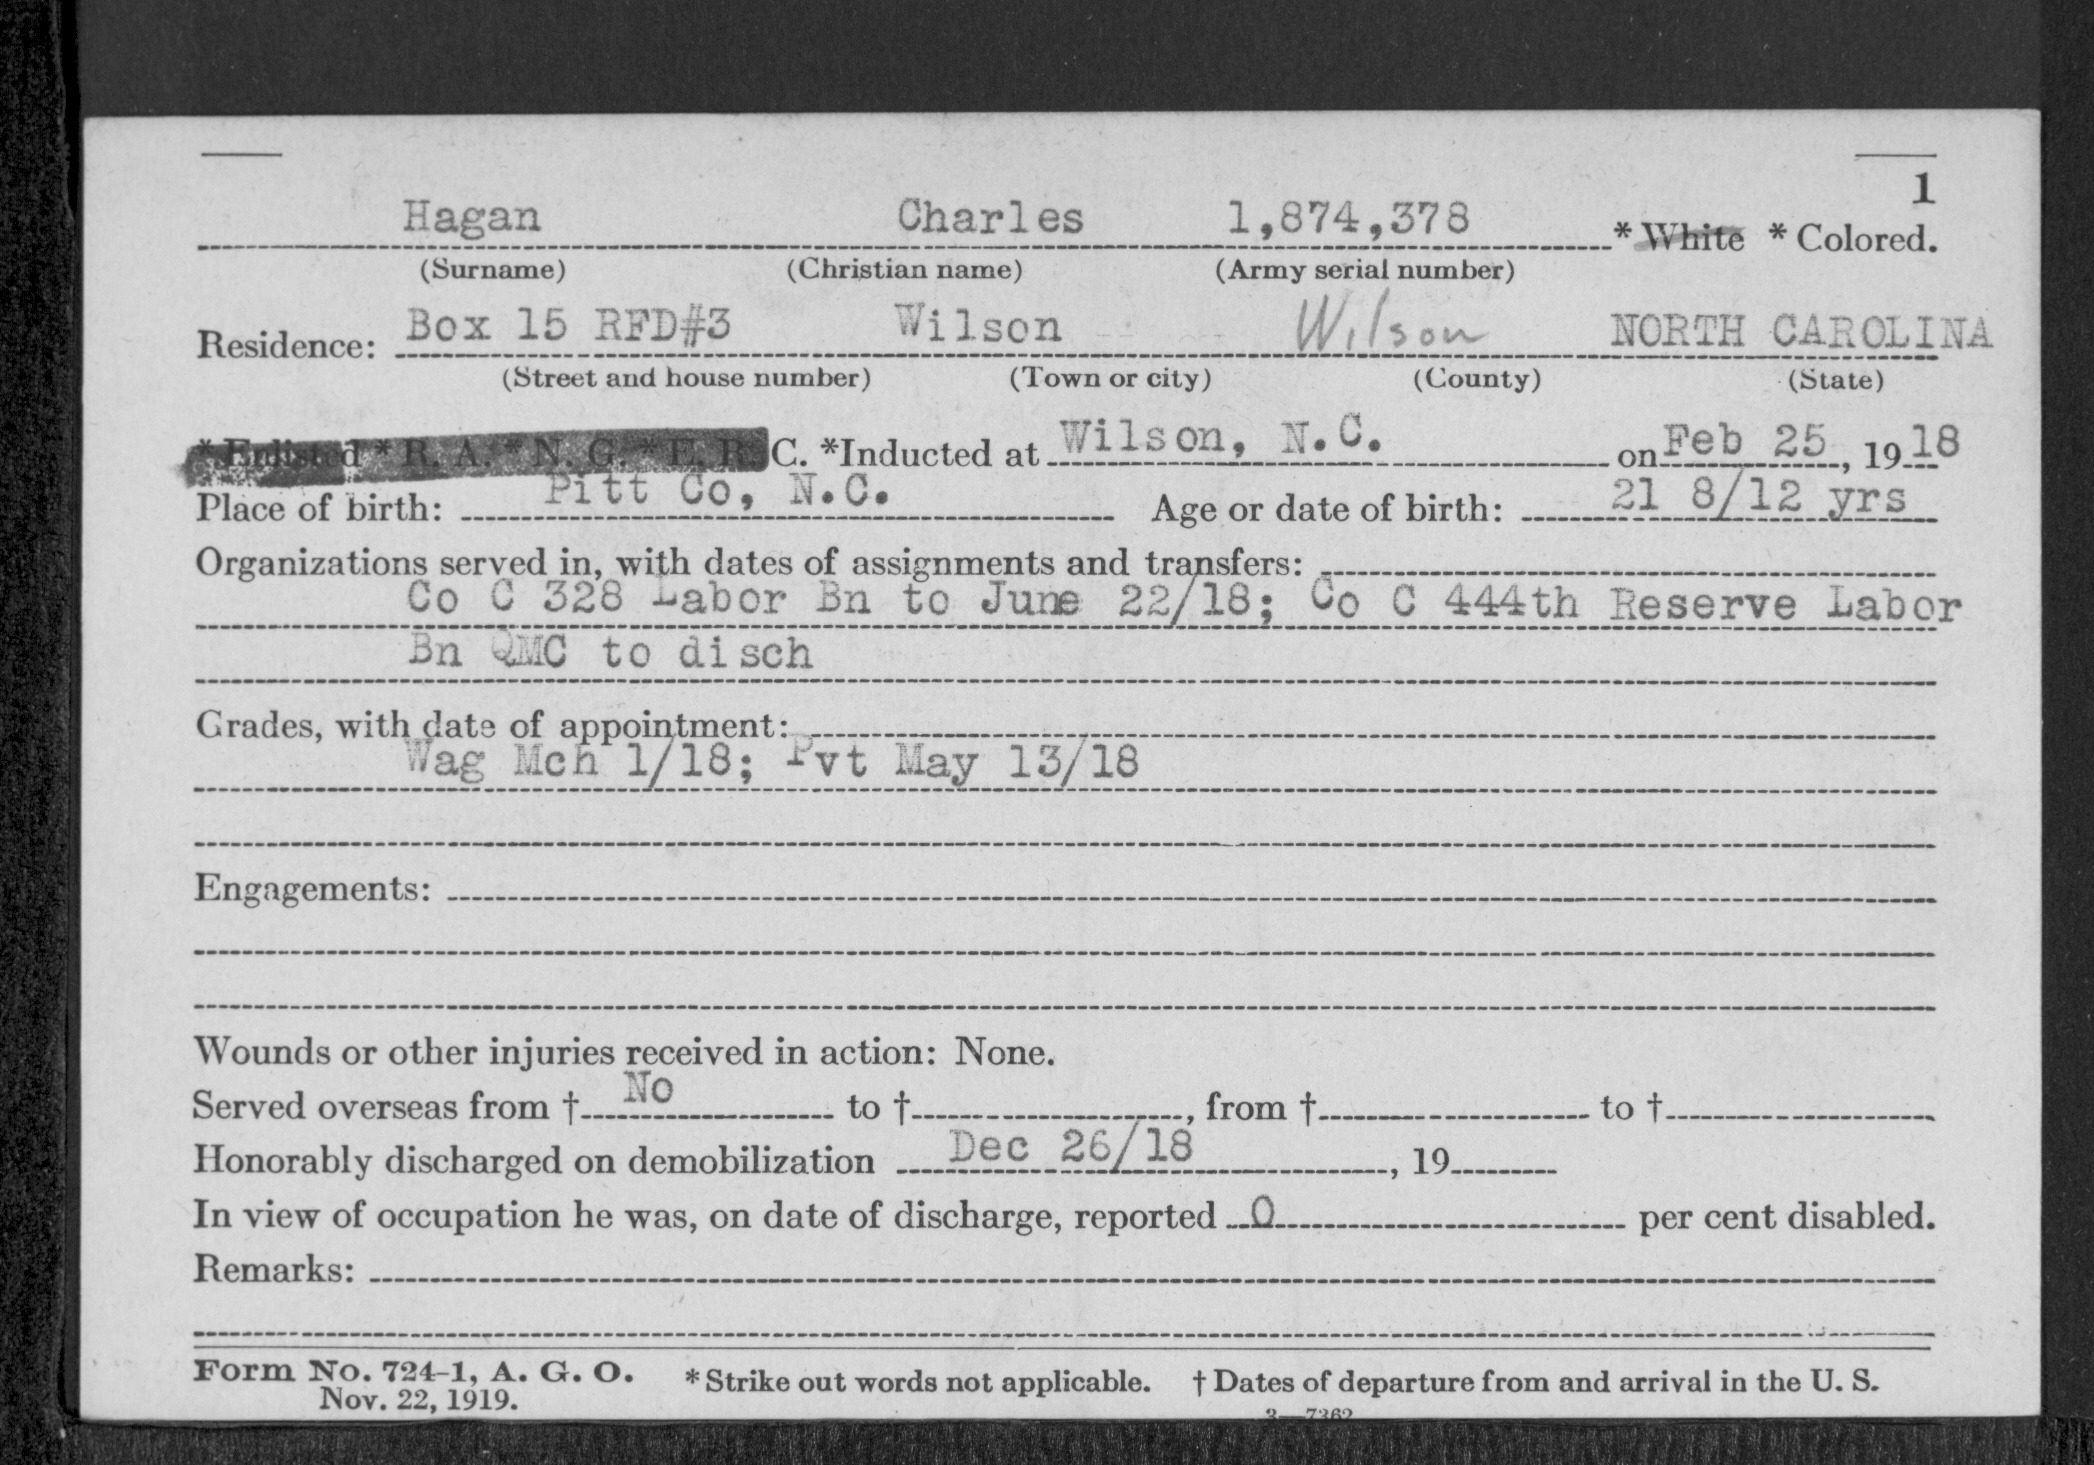 1
Hagan Charles 1,874,378 * White * Colored.
(Surname) (Christian name) (Army serial number)
Residence: Box 15 RFD#3 Wilson Wilson NORTH CAROLINA
(Street and house number) (Town or city) (County) (State)
* Enlisted * R. A. * N. G. * E. R. C. *Inducted at Wilson, N.C. on Feb 25, 1918
Place of birth: Pitt Co, N.C. Age or date of birth: 21 8/12 yrs
Organizations served in, with dates of assignments and transfers:
Co C 328 Labor Bn to June 22/18; Co C 444th Reserve Labor
Bn QMC to disch
Grades, with date of appointment:
Wag Mch 1/18; Pvt May 13/18
Engagements:
Wounds or other injuries received in action: None.
Served overseas from † No to †, from † to †
Honorably discharged on demobilization Dec 26/18, 19
In view of occupation he was, on date of discharge, reported 0 per cent disabled.
Remarks:
Form No. 724-1, A. G. O. * Strike out words not applicable. † Dates of departure from and arrival in the U. S.
Nov. 22, 1919. 3—7362